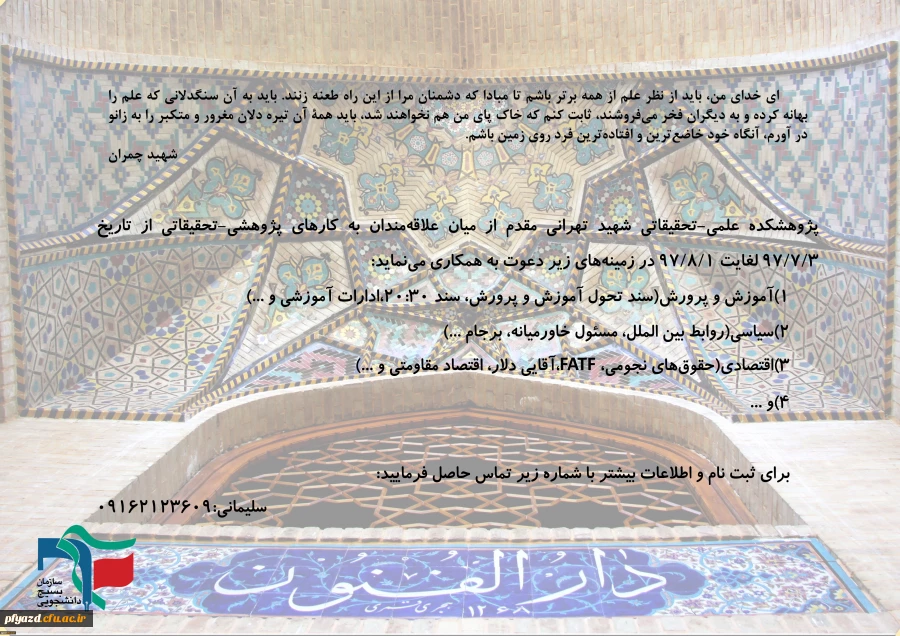 ای خدای من، باید از نظر علم از همه برتر باشم تا مبادا که دشمنان مرا از این راه طعنه زنند. باید به آن سنگدلانی که علم را
بهانه کرده و به دیگران فخر می‌فروشند، ثابت کنم که خاک پای من هم نخواهند شد، باید همهٔ آن تیره دلان مغرور و متکبر را به زانو
در آورم، آنگاه خود خاضع‌ترین و افتاده‌ترین فرد روی زمین باشم.
شهید چمران
پژوهشکده علمی-تحقیقاتی شهید تهرانی مقدم از میان علاقه‌مندان به کارهای پژوهشی-تحقیقاتی از تاریخ
۹۷/۷/۳ لغایت ۹۷/۸/۱ در زمینه‌های زیر دعوت به همکاری می‌نماید:
۱)آموزش و پرورش(سند تحول آموزش و پرورش، سند ۲۰:۳۰،ادارات آموزشی و ...)
۲)سیاسی(روابط بین الملل، مسئول خاورمیانه، برجام ...)
۳)اقتصادی(حقوق‌های نجومی، FATF،آقایی دلار، اقتصاد مقاومتی و ...)
۴)و ...
برای ثبت نام و اطلاعات بیشتر با شماره زیر تماس حاصل فرمایید:
سلیمانی:۰۹۱۶۲۱۲۳۶۰۹
دار الفنون
هجری قمری ۱۲۶۸
سازمان
بسیج
دانشجویی
pfyazd.cfu.ac.ir